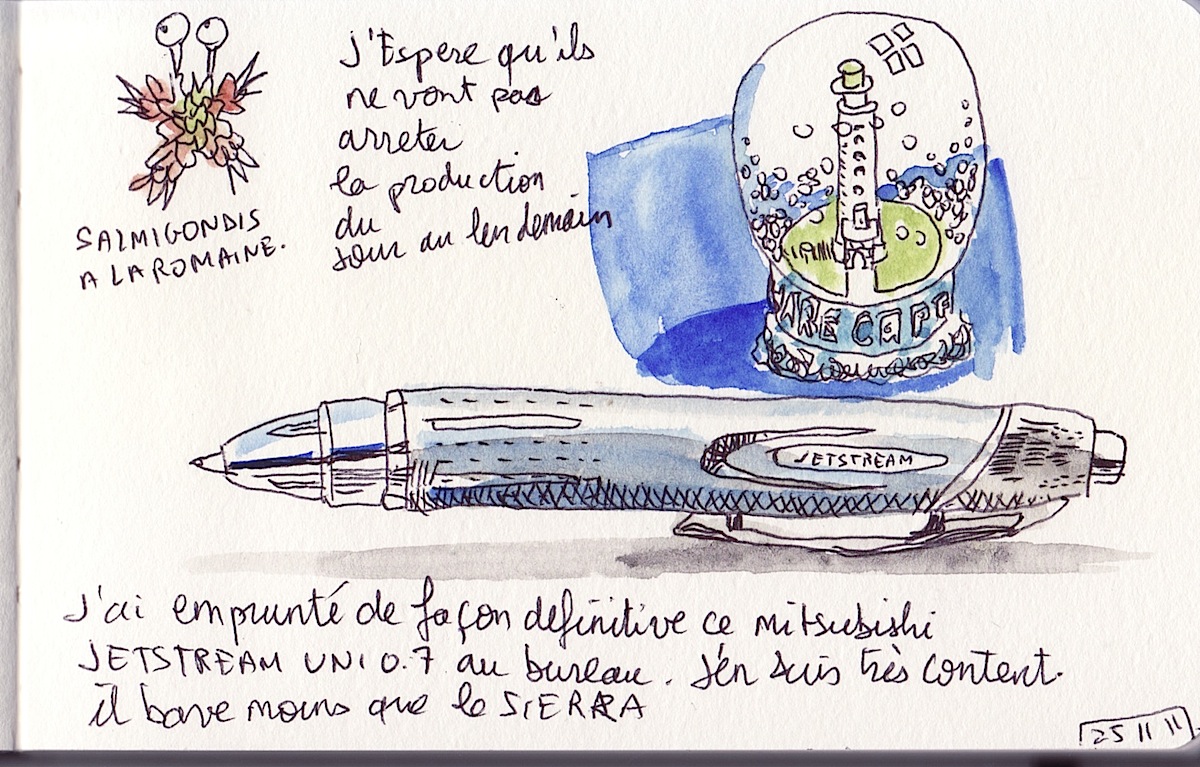 J'Espere qu'ils
ne vont pas
arreter
la production
du
jour au lendemain
SALMIGONDIS
A LA ROMAINE.
ARE CAPF
JETSTREAM
J'ai emprunté de façon definitive ce mitsubishi
JETSTREAM UNI 0.7 au bureau. J'en suis très content.
il bave moins que le SIERRA
25 11 11